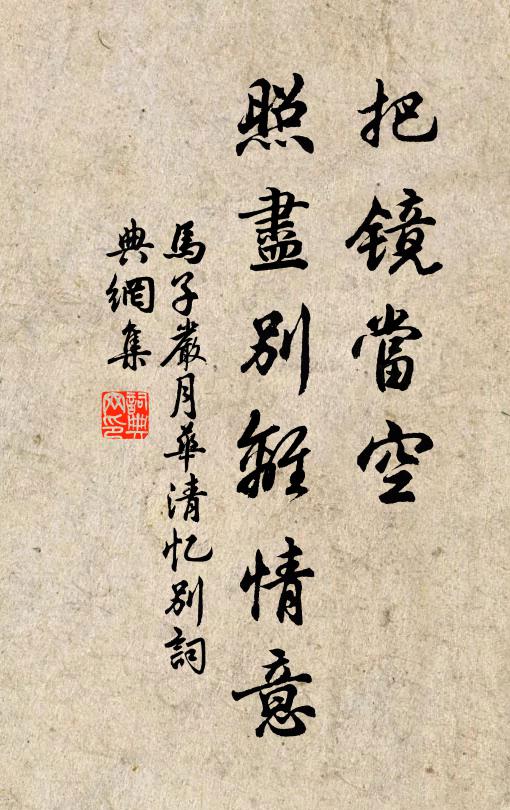 把镜當空
照盡別離情意
馬子嚴月華清忆別詞
典網集
詞典
网印